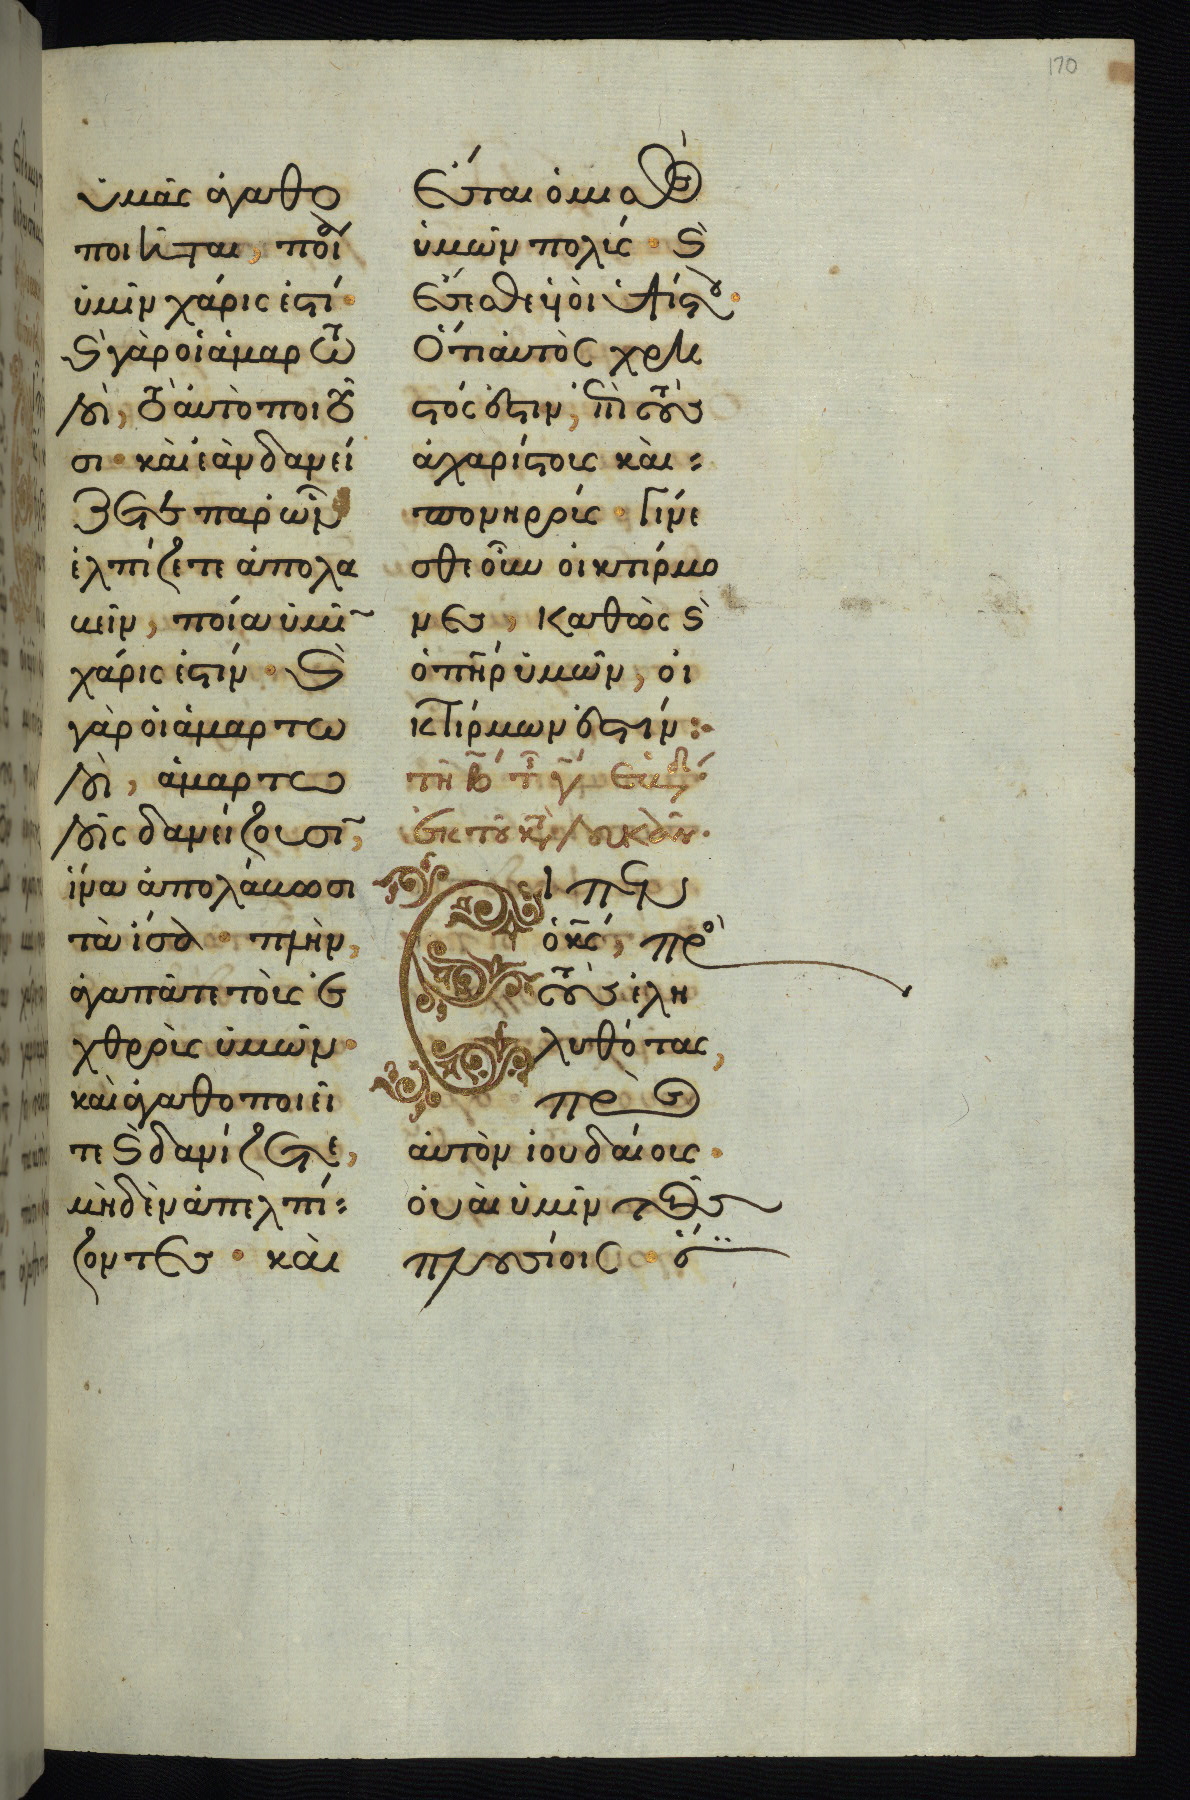 170
ὑμᾶς ἀγαθο
ποιῆται, ποία
ὑμῖν χάρις ἐστί·
καὶ γὰρ οἱ ἁμαρτω
λοὶ, τὸ αὐτὸ ποιοῦ
σι· καὶ ἐὰν δανεί
ζετε παρ' ὧν
ἐλπίζετε ἀπολα
βεῖν, ποία ὑμῖν
χάρις ἐστίν· καὶ
γὰρ οἱ ἁμαρτω
λοὶ, ἁμαρτω
λοῖς δανείζουσιν,
ἵνα ἀπολάβωσι
τὰ ἴσα· πλὴν,
ἀγαπᾶτε τοὺς ἐ
χθροὺς ὑμῶν·
καὶ ἀγαθοποιεῖ
τε καὶ δανίζετε,
μηδὲν ἀπελπί
ζοντες· καὶ
ἔσται ὁ μισθὸς
ὑμῶν πολύς· καὶ
ἔσεσθε υἱοὶ ὑψίστου·
ὅτι αὐτὸς χρη
στός ἐστιν, ἐπὶ τοὺς
ἀχαρίστους καὶ
πονηρούς· γίνε
σθε οὖν οἰκτίρμο
νες, καθὼς καὶ
ὁ πηρ ὑμῶν, οἰ
κτίρμων ἐστίν:
τῇ β τῆς
ἐκ τοῦ κατὰ λουκᾶν·
Εἶπεν
ὁ κς, πρὸς
τοὺς ἐλη
λυθότας,
πρὸς
αὐτὸν ἰουδαίους·
οὐαὶ ὑμῖν τοῖς
πλουσίοις· ὅτι